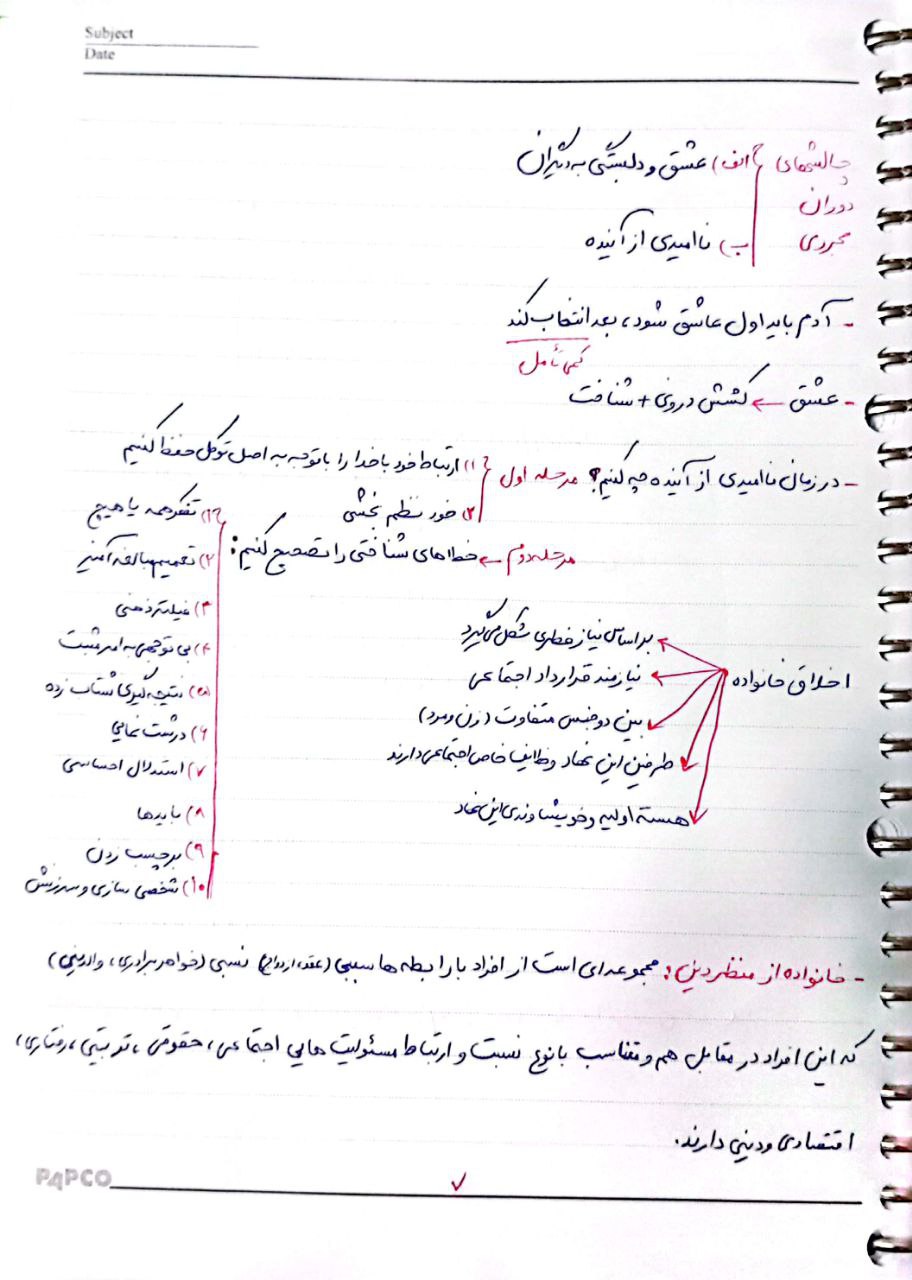 Subject
Date
چالشهای دوران مجردی
الف) عشق و دلبستگی به دیگران
ب) ناامیدی از آینده
- آدم باید اول عاشق شود، بعد انتخاب کند
کمی تأمل
- عشق ← کشش درونی + شناخت
- در زمان ناامیدی از آینده چه کنیم؟ مرحله اول
۱) ارتباط خود با خدا را با توجه به اصل توکل حفظ کنیم
۲) خود نظم بخشی
مرحله دوم ← خطاهای شناختی را تصحیح کنیم:
۱) تفکر همه یا هیچ
۲) تعمیم مبالغه آمیز
۳) فیلتر ذهنی
۴) بی توجهی به امر مثبت
۵) نتیجه گیری شتاب زده
۶) درشت نمایی
۷) استدلال احساسی
۸) بایدها
۹) برچسب زدن
۱۰) شخصی سازی و سرزنش
اخلاق خانواده
براساس نیاز فطری شکل می‌گیرد
نیازمند قرارداد اجتماعی
بین دو جنس متفاوت (زن و مرد)
طرفین این نهاد وظایف خاص اجتماعی دارند
هسته اولیه و خویشاوندی این نهاد
- خانواده از منظر دین: مجموعه‌ای است از افراد با رابطه ها سببی (عقد، ازدواج) نسبی (خواهر برادری، والدینی)
که این افراد در مقابل هم و متناسب با نوع نسبت و ارتباط مسئولیت هایی اجتماعی، حقوقی، تربیتی، رفتاری،
اقتصادی و دینی دارند.
PAPCO